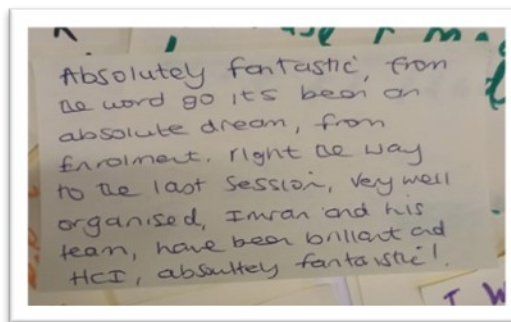 Absolutely fantastic, from
the word go its been an
absolute dream, from
Enrolment. right the way
to the last session, very well
organised, Imran and his
team, have been brillant and
HCI, absoultely fantaistic!